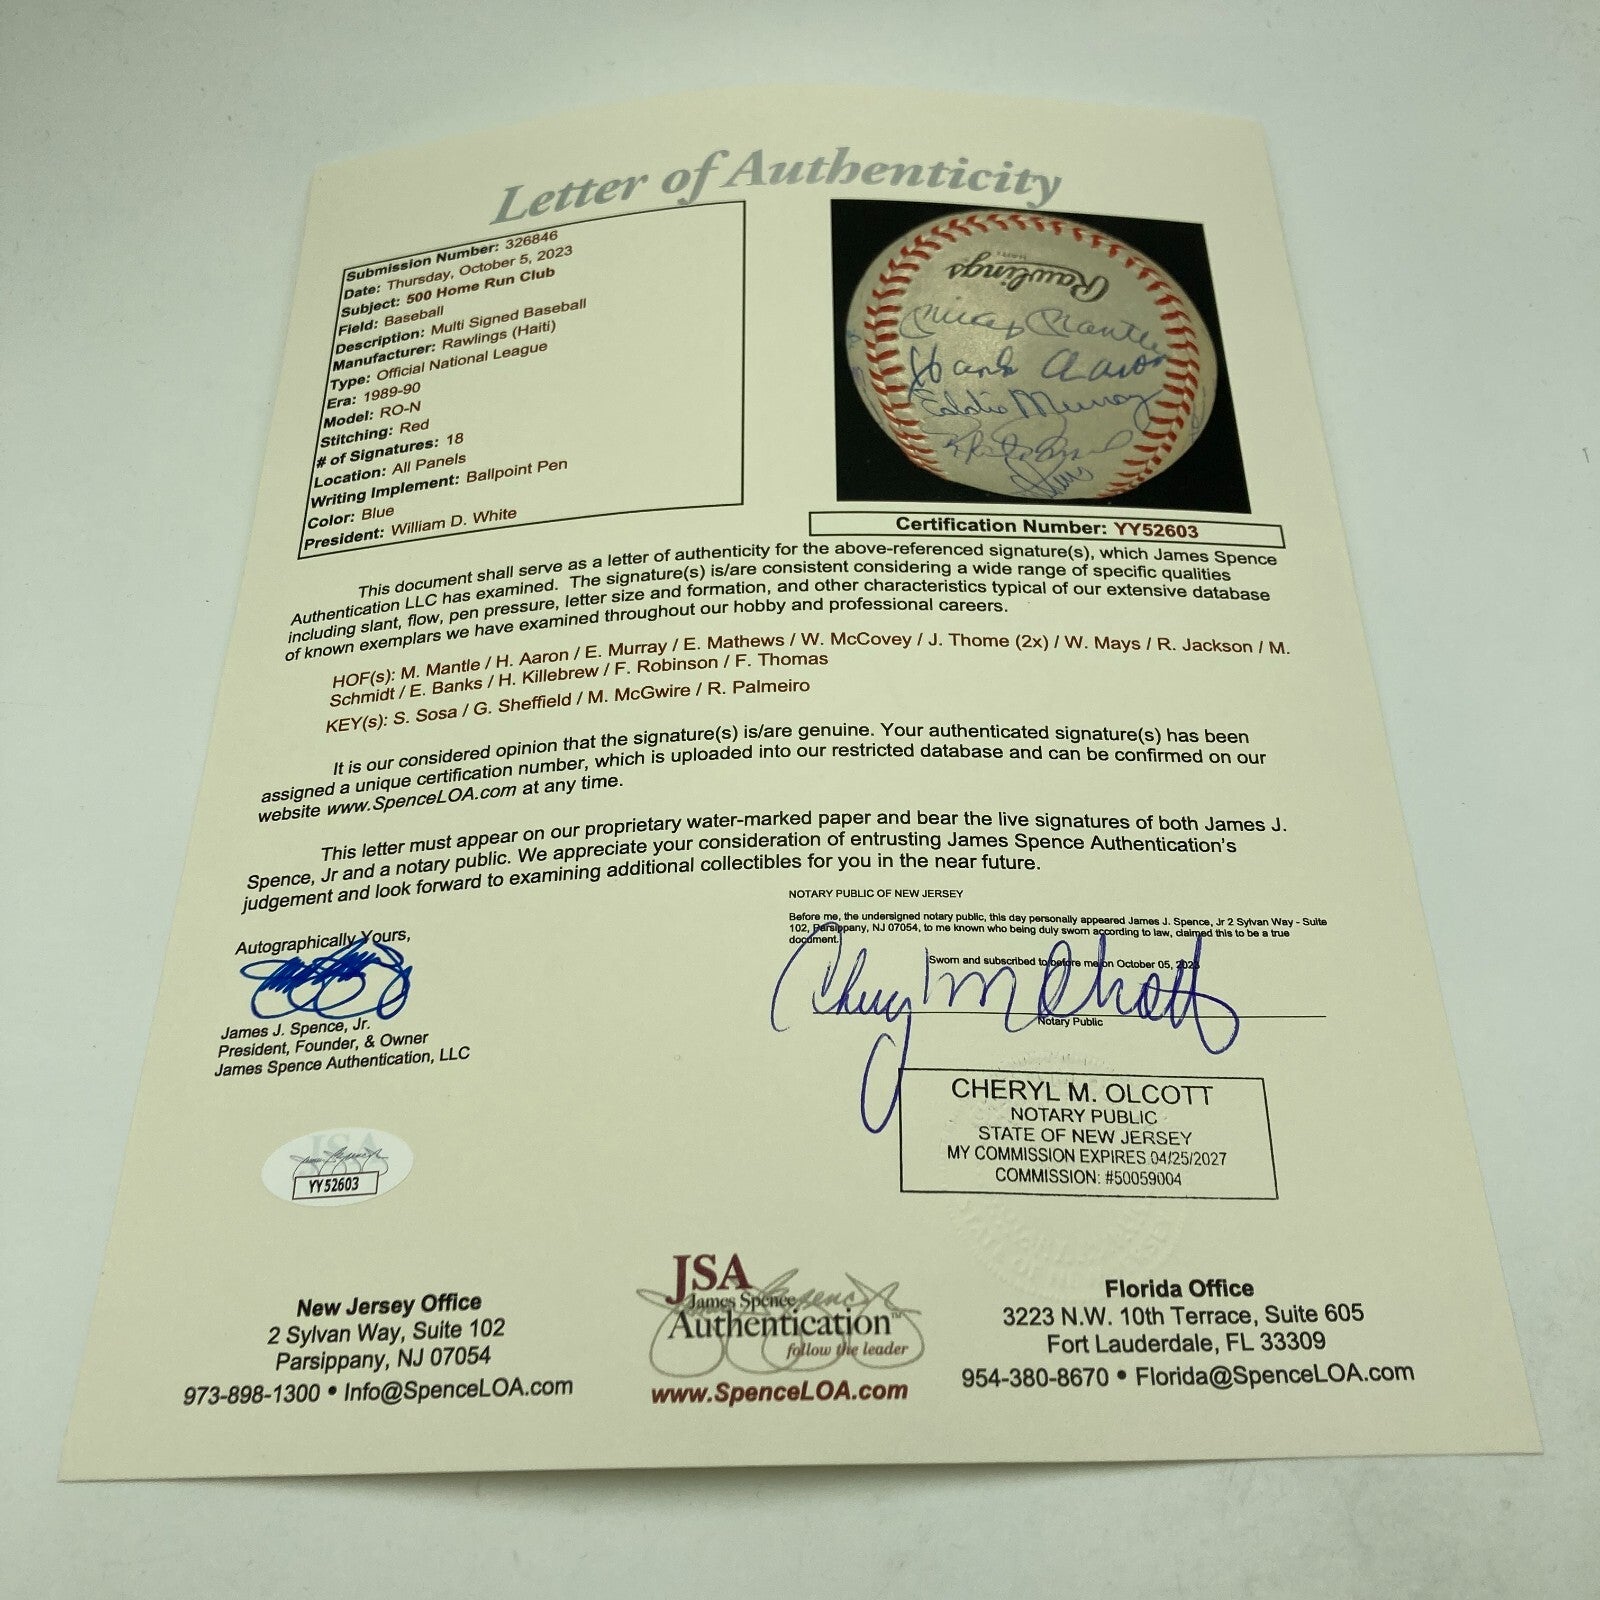 Letter of Authenticity
Submission Number: 326846
Date: Thursday, October 5, 2023
Subject: 500 Home Run Club
Field: Baseball
Description: Multi Signed Baseball
Manufacturer: Rawlings (Haiti)
Type: Official National League
Era: 1989-90
Model: RO-N
Stitching: Red
# of Signatures: 18
Location: All Panels
Writing Implement: Ballpoint Pen
Color: Blue
President: William D. White
Rawlings
Mickey Mantle
Hank Aaron
Eddie Murray
Certification Number: YY52603
This document shall serve as a letter of authenticity for the above-referenced signature(s), which James Spence
Authentication LLC has examined. The signature(s) is/are consistent considering a wide range of specific qualities
including slant, flow, pen pressure, letter size and formation, and other characteristics typical of our extensive database
of known exemplars we have examined throughout our hobby and professional careers.
HOF(s): M. Mantle / H. Aaron / E. Murray / E. Mathews / W. McCovey / J. Thome (2x) / W. Mays / R. Jackson / M.
Schmidt / E. Banks / H. Killebrew / F. Robinson / F. Thomas
KEY(s): S. Sosa / G. Sheffield / M. McGwire / R. Palmeiro
It is our considered opinion that the signature(s) is/are genuine. Your authenticated signature(s) has been
assigned a unique certification number, which is uploaded into our restricted database and can be confirmed on our
website www.SpenceLOA.com at any time.
This letter must appear on our proprietary water-marked paper and bear the live signatures of both James J.
Spence, Jr and a notary public. We appreciate your consideration of entrusting James Spence Authentication's
judgement and look forward to examining additional collectibles for you in the near future.
NOTARY PUBLIC OF NEW JERSEY
Before me, the undersigned notary public, this day personally appeared James J. Spence, Jr 2 Sylvan Way - Suite
102, Parsippany, NJ 07054, to me known who being duly sworn according to law, claimed this to be a true
document.
Sworn and subscribed to before me on October 05, 2023
Cheryl M Olcott
Notary Public
Autographically Yours,
James J. Spence, Jr.
President, Founder, & Owner
James Spence Authentication, LLC
CHERYL M. OLCOTT
NOTARY PUBLIC
STATE OF NEW JERSEY
MY COMMISSION EXPIRES 04/25/2027
COMMISSION: #50059004
JSA
YY52603
New Jersey Office
2 Sylvan Way, Suite 102
Parsippany, NJ 07054
973-898-1300 • Info@SpenceLOA.com
JSA
James Spence
Authentication™
follow the leader
www.SpenceLOA.com
Florida Office
3223 N.W. 10th Terrace, Suite 605
Fort Lauderdale, FL 33309
954-380-8670 • Florida@SpenceLOA.com